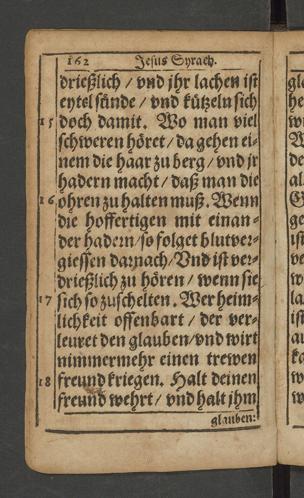 162 Jesus Syrach.
drießlich / vnd jhr lachen ist
eytel sünde / vnd kützeln sich
15 doch damit. Wo man viel
schweren höret / da gehen ei-
nem die haar zu berg / vnd jr
hadern macht / daß man die
16 ohren zu halten muß. Wenn
die hoffertigen mit einan-
der hadern / so folget blutver-
giessen darnach / Vnd ist ver-
drießlich zu hören / wenn sie
17 sich so zuschelten. Wer heim-
lichkeit offenbart / der ver-
leuret den glauben / vnd wirt
nimmermehr einen trewen
18 freund kriegen. Halt deinen
freund wehrt / vnd halt jhm
glauben: